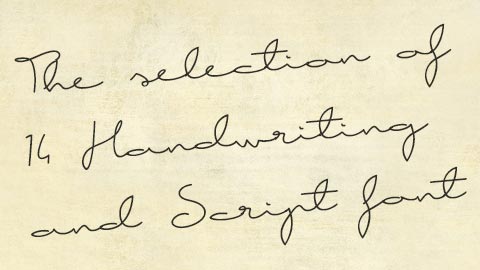 The selection of
14 Handwriting
and Script font